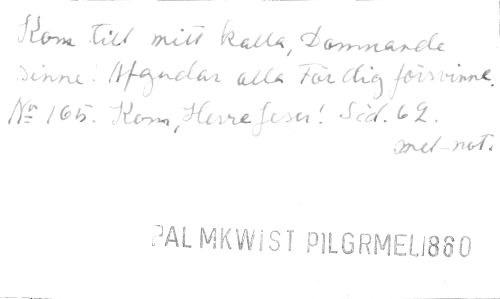 Kom till mitt kalla, Domnande
sinne! Afgudar alla För dig försvinne.
No 165. Kom, Herre Jesu! Sid. 62.
mel-not.
PALMKWIST PILGRMEL1860